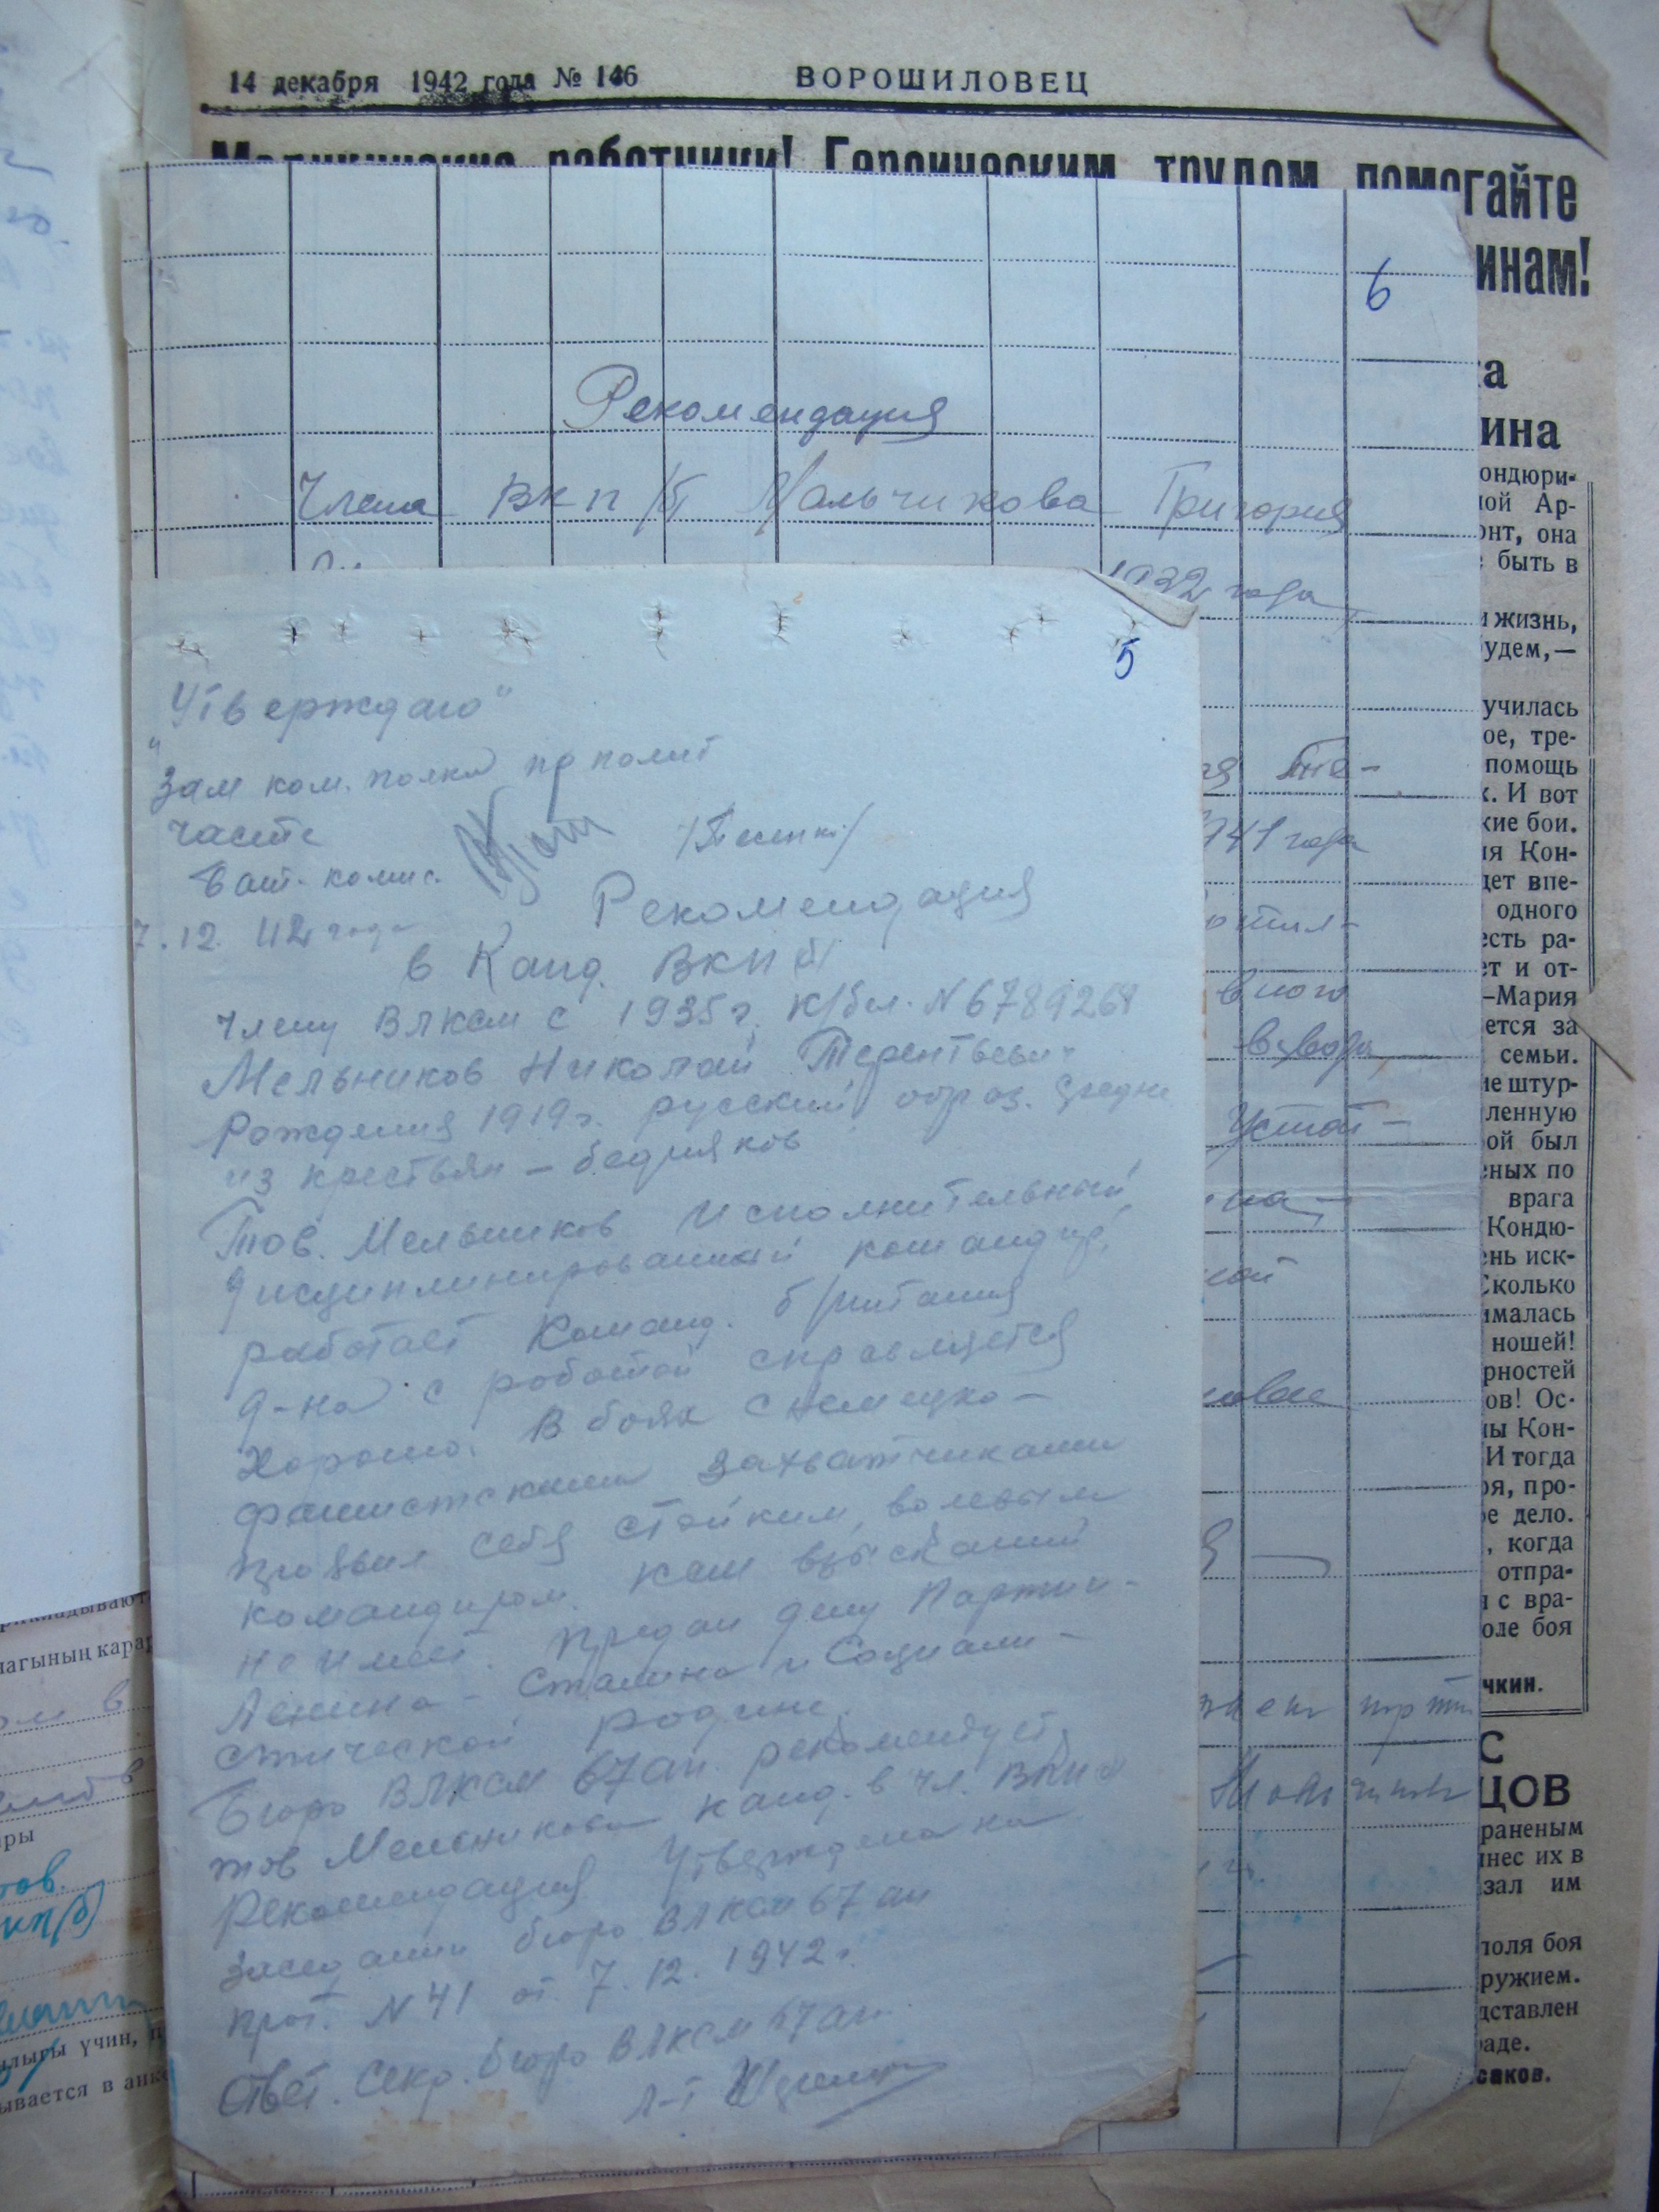 14 декабря 1942 года № 146 ВОРОШИЛОВЕЦ
Медицинские работники! Героическим трудом помогайте
инам!
6
Рекомендация
Члена ВКП/б Мальчикова Григория
1932 года
5
"Утверждаю"
Зам ком. полка по полит
части
Бат. комис.
7.12.42 года
Рекомендация
в Канд. ВКП(б)
Члену ВЛКСМ с 1935 г. к/бил. N 6789268
Мельников Николай Терентьевич
Рождения 1919 г. русский, образ. средне
из крестьян – бедняков
Тов. Мельников Исполнительный,
дисциплинированный командир,
работает Команд. б/питания
д-на с работой справляется
Хорошо. В боях с немецко-
фашистскими захватчиками
проявил себя стойким, волевым
командиром. Ком взысканий
не имеет. Предан делу Партии-
Ленина – Сталина и Социали-
стической родине.
Бюро ВЛКСМ 67 ап. рекомендует
тов Мельникова канд. в чл. ВКП(б)
Рекомендация Утверждена на
Заседании бюро ВЛКСМ 67 ап
прот. N 41 от 7.12.1942 г.
Ответ. Секр. бюро ВЛКСМ 67 ап.
л-т
941 года
вного
взвода
Устой-
на-
ной
член парти
Мальчиков
а
ина
ондюри-
ной Ар-
онт, она
быть в
и жизнь,
удем,—
училась
ое, тре-
помощь
к. И вот
кие бои.
ия Кон-
дет впе-
одного
есть ра-
ет и от-
–Мария
ется за
семьи.
не штур-
ленную
ой был
ных по
врага
Кондю-
нь иск-
Сколько
ималась
ношей!
рностей
ов! Ос-
ны Кон-
И тогда
оя, про-
е дело.
, когда
отпра-
и с вра-
оле боя
чкин.
С
ЦОВ
раненым
нес их в
зал им
поля боя
ружием.
дставлен
раде.
саков.
нагының карар
ом в
ры
тов.
кп(б)
лыгы үчин,
ывается в анке